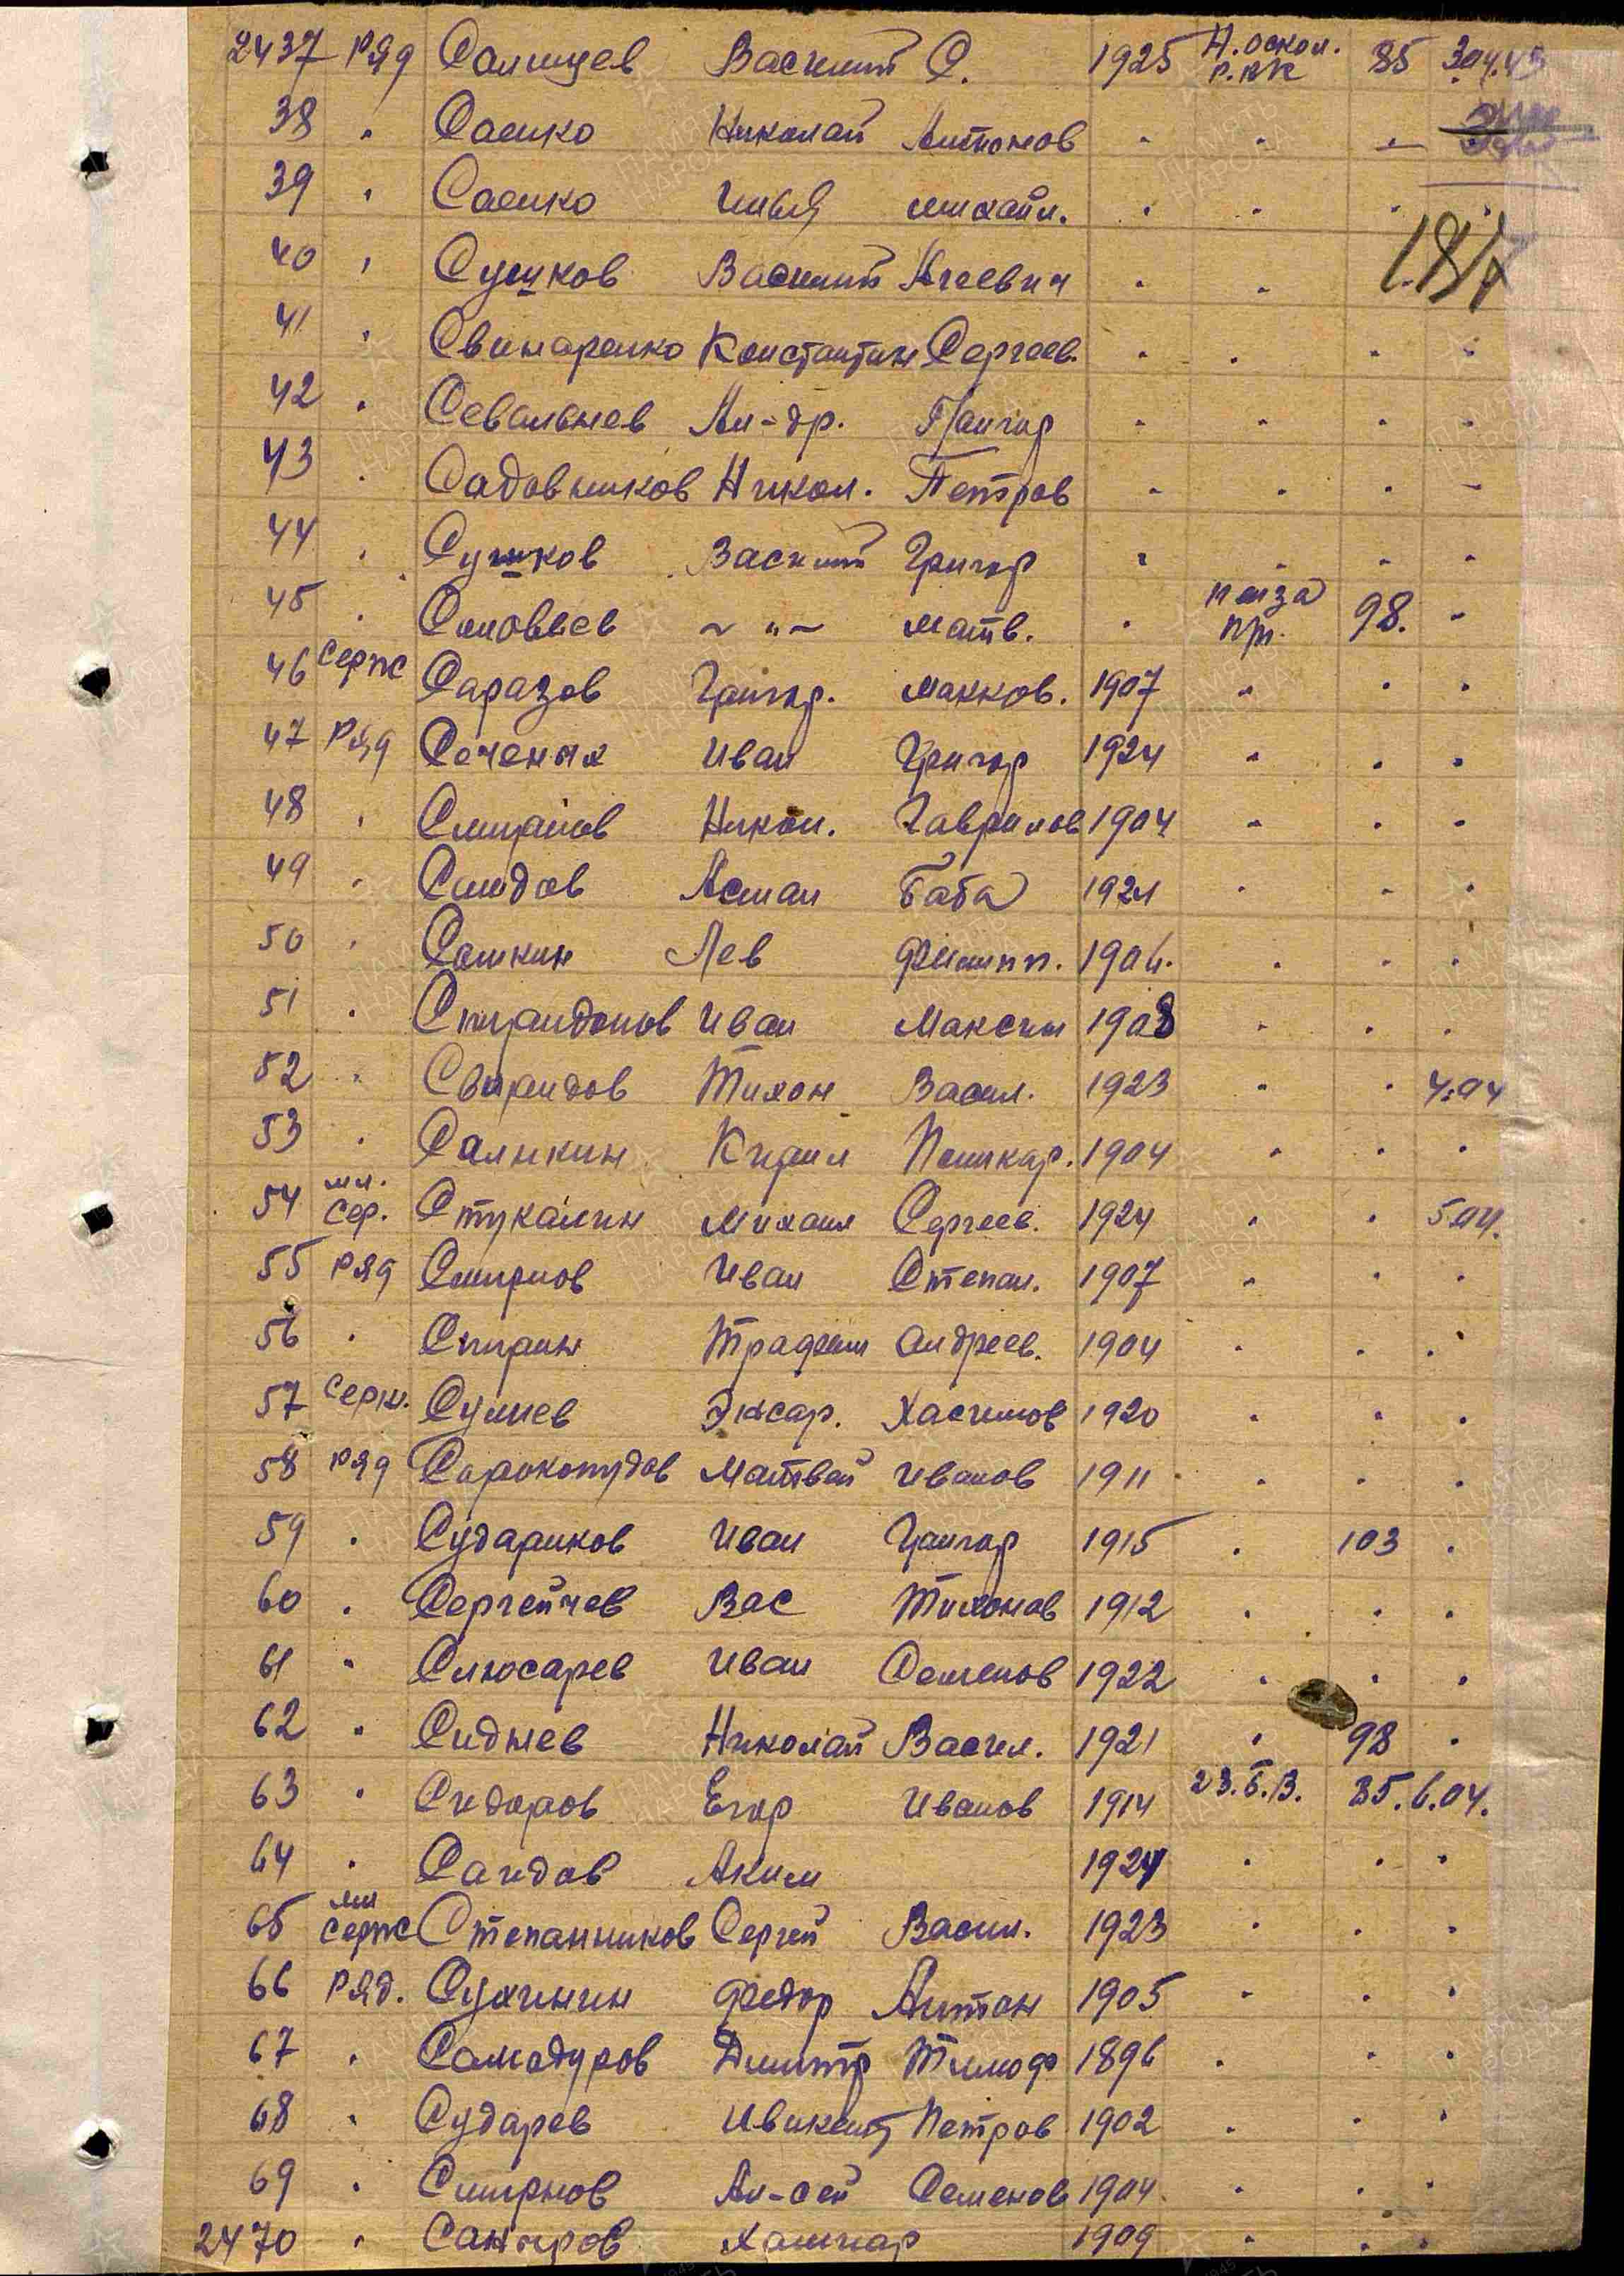 2437 ряд Солнцев Василий С. 1925 Н.оскол. р.вк 85 3.04.43
38 " Саенко Николай Антонов " " "
39 " Саенко Илья михайл. " " " "
40 " Сушков Василий Агеевич " "
1.8/V
41 " Свинаренко Константин Сергеев. " " " "
42 " Севальнев Ал-др. Григор " " " "
43 " Садовников Никол. Петров " " " "
44 " Сушков Василий Григор " " " "
45 " Соловьев ~ " ~ матв. " пенза пр. 98. "
46 серж Саразов Григор. 1907 " " "
47 Ряд Сеченых Иван Григор 1924 " " "
48 " Никол. Гаврилов 1904 " " "
49 " Саидов Асман Баба 1921 " " "
50 " Сошкин Лев Филипп. 1906. " " "
51 " Спиридонов Иван Максим 1908 " " "
52 " Свиридов Тихон Васил. 1923 " " 4.04
53 " Салыкин Кирил 1904 " " "
54 мл. сер. Стукалин Михаил Сергеев. 1924 " " 5.04.
55 ряд Смирнов Иван Степан. 1907 " " "
56 " Спирин Трафим Андреев. 1904 " " "
57 серж. Сулиев Хасимов 1920 " " "
58 ряд Сорокопудов Матвей Иванов 1911 " " "
59 " Судариков Иван Григор 1915 " 103 "
60 " Сергейчев Вас Тихонов 1912 " " "
61 " Слюсарев Иван Семенов 1922 " " "
62 " Сиднев Николай Васил. 1921 " 98 "
63 " Сидоров Егор Иванов 1914 23.Б.В. 85. 6.04.
64 " Саидов Аким 1924 " " "
65 мл серж Степанников Сергей Васил. 1923 " " "
66 ряд. Сухинин Федор Антон 1905 " " "
67 " Самодуров Димитр Тимоф 1896 " " "
68 " Сударев Петров 1902 " " "
69 " Смирнов Ал-сей Семенов 1904 " " "
2470 " 1909 " " "